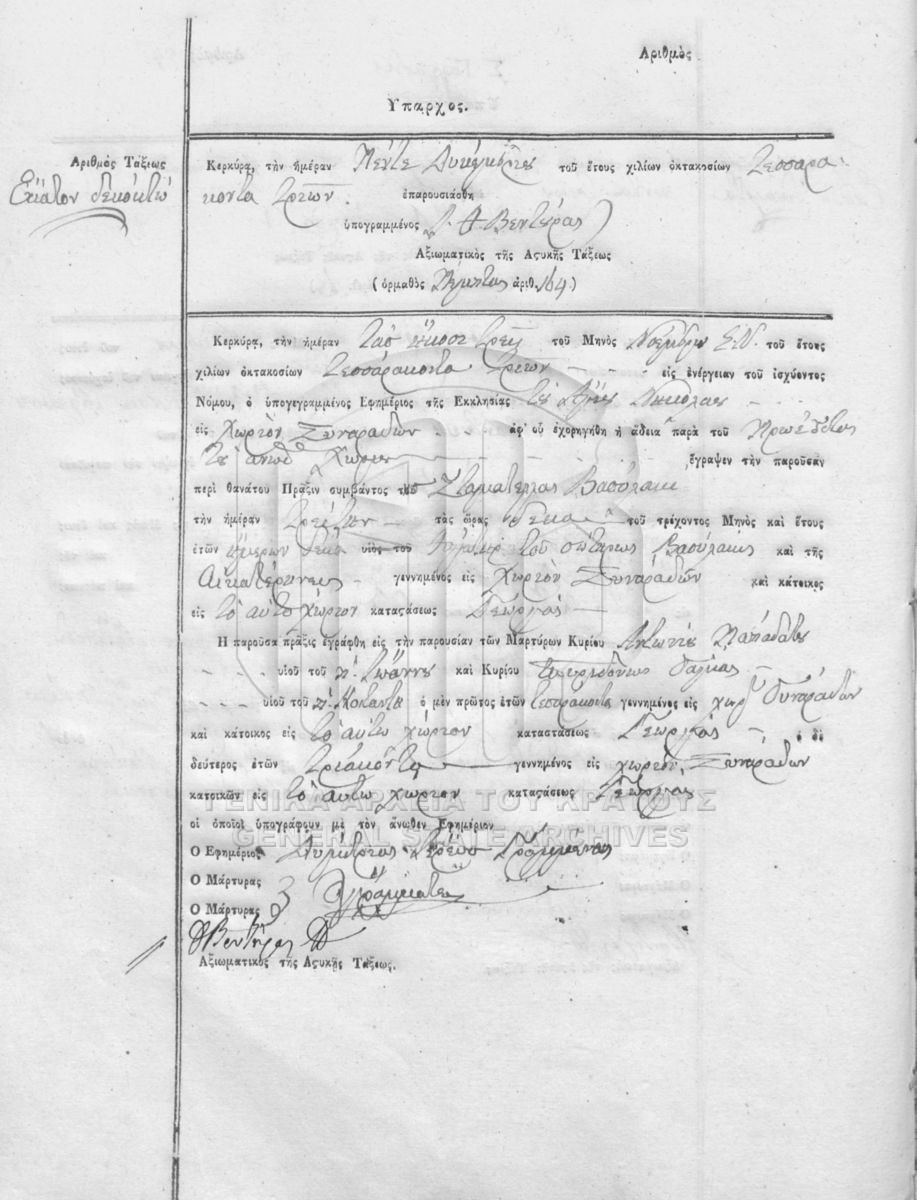 Ἀριθμὸς
Ὕπαρχος.
Ἀριθμὸς Τάξεως
Ἑκατὸν δεκαοκτώ
Κερκύρα, τὴν ἡμέραν Πέντε Δεκεμβρίου τοῦ ἔτους χιλίων ὀκτακοσίων Τεσσαρα-
κοντα τριῶν. ἐπαρουσιάσθη
ὑπογραμμένος Βεντύρας
Ἀξιωματικὸς τῆς Ἀςυκῆς Τάξεως
(ὁρμαθὸς Πέμπτος ἀριθ. 164)
Κερκύρα, τὴν ἡμέραν τὰς εἴκοσι τρεῖς τοῦ Μηνὸς Νοεμβρίου Ε.Π. τοῦ ἔτους
χιλίων ὀκτακοσίων Τεσσαράκοντα τριῶν εἰς ἐνέργειαν τοῦ ἰσχύοντος
Νόμου, ὁ ὑπογεγραμμένος Ἐφημέριος τῆς Ἐκκλησίας τοῦ Ἁγίου Νικολάου
εἰς Χωρίον Συναράδων ἀφ' οὗ ἐχορηγήθη ἡ ἄδεια παρὰ τοῦ Προεστῶτος
τοῦ ἄνωθ Χωρίου ἔγραψεν τὴν παροῦσαν
περὶ θανάτου Πρᾶξιν συμβάντος τοῦ Σταματέλλας Βασυλάκη
τὴν ἡμέραν τρίτην τὰς ὥρας δέκα τοῦ τρέχοντος Μηνὸς καὶ ἔτους
ἐτῶν ἡμερῶν δέκα υἱὸς τοῦ τοῦ Βασυλάκης καὶ τῆς
Αἰκατερίνης γεννημένος εἰς Χωρίον Συναράδων καὶ κάτοικος
εἰς τὸ αὐτὸ χωρίον καταςάσεως Γεωργός
Ἡ παροῦσα πρᾶξις ἐγράφθη εἰς τὴν παρουσίαν τῶν Μαρτύρων Κυρίου Ἀντώνιος Παπαδάτος
υἱοῦ τοῦ π. Ἰωάννου καὶ Κυρίου Σπυρίδωνος
υἱοῦ τοῦ ὁ μὲν πρῶτος ἐτῶν τεσσαράκοντα γεννημένος εἰς χωρ Συναράδων
καὶ κάτοικος εἰς τὸ αὐτὸ χωρίον καταστάσεως Γεωργός ὁ δὲ
δεύτερος ἐτῶν τριάκοντα γεννημένος εἰς χωρίον Συναράδων
κατοικῶν εἰς τὸ αὐτὸ χωρίον καταςάσεως Γεωργός
οἱ ὁποῖοι ὑπογράφουν μὲ τὸν ἄνωθεν Ἐφημέριον
Ὁ Ἐφημέριος Δημήτριος Ἱερεὺς Γραμμένος
Ὁ Μάρτυρας
Ὁ Μάρτυρας
Βεντύρας
Ἀξιωματικὸς τῆς Ἀςυκῆς Τάξεως.
ΓΕΝΙΚΑ ΑΡΧΕΙΑ ΤΟΥ ΚΡΑΤΟΥΣ
GENERAL STATE ARCHIVES